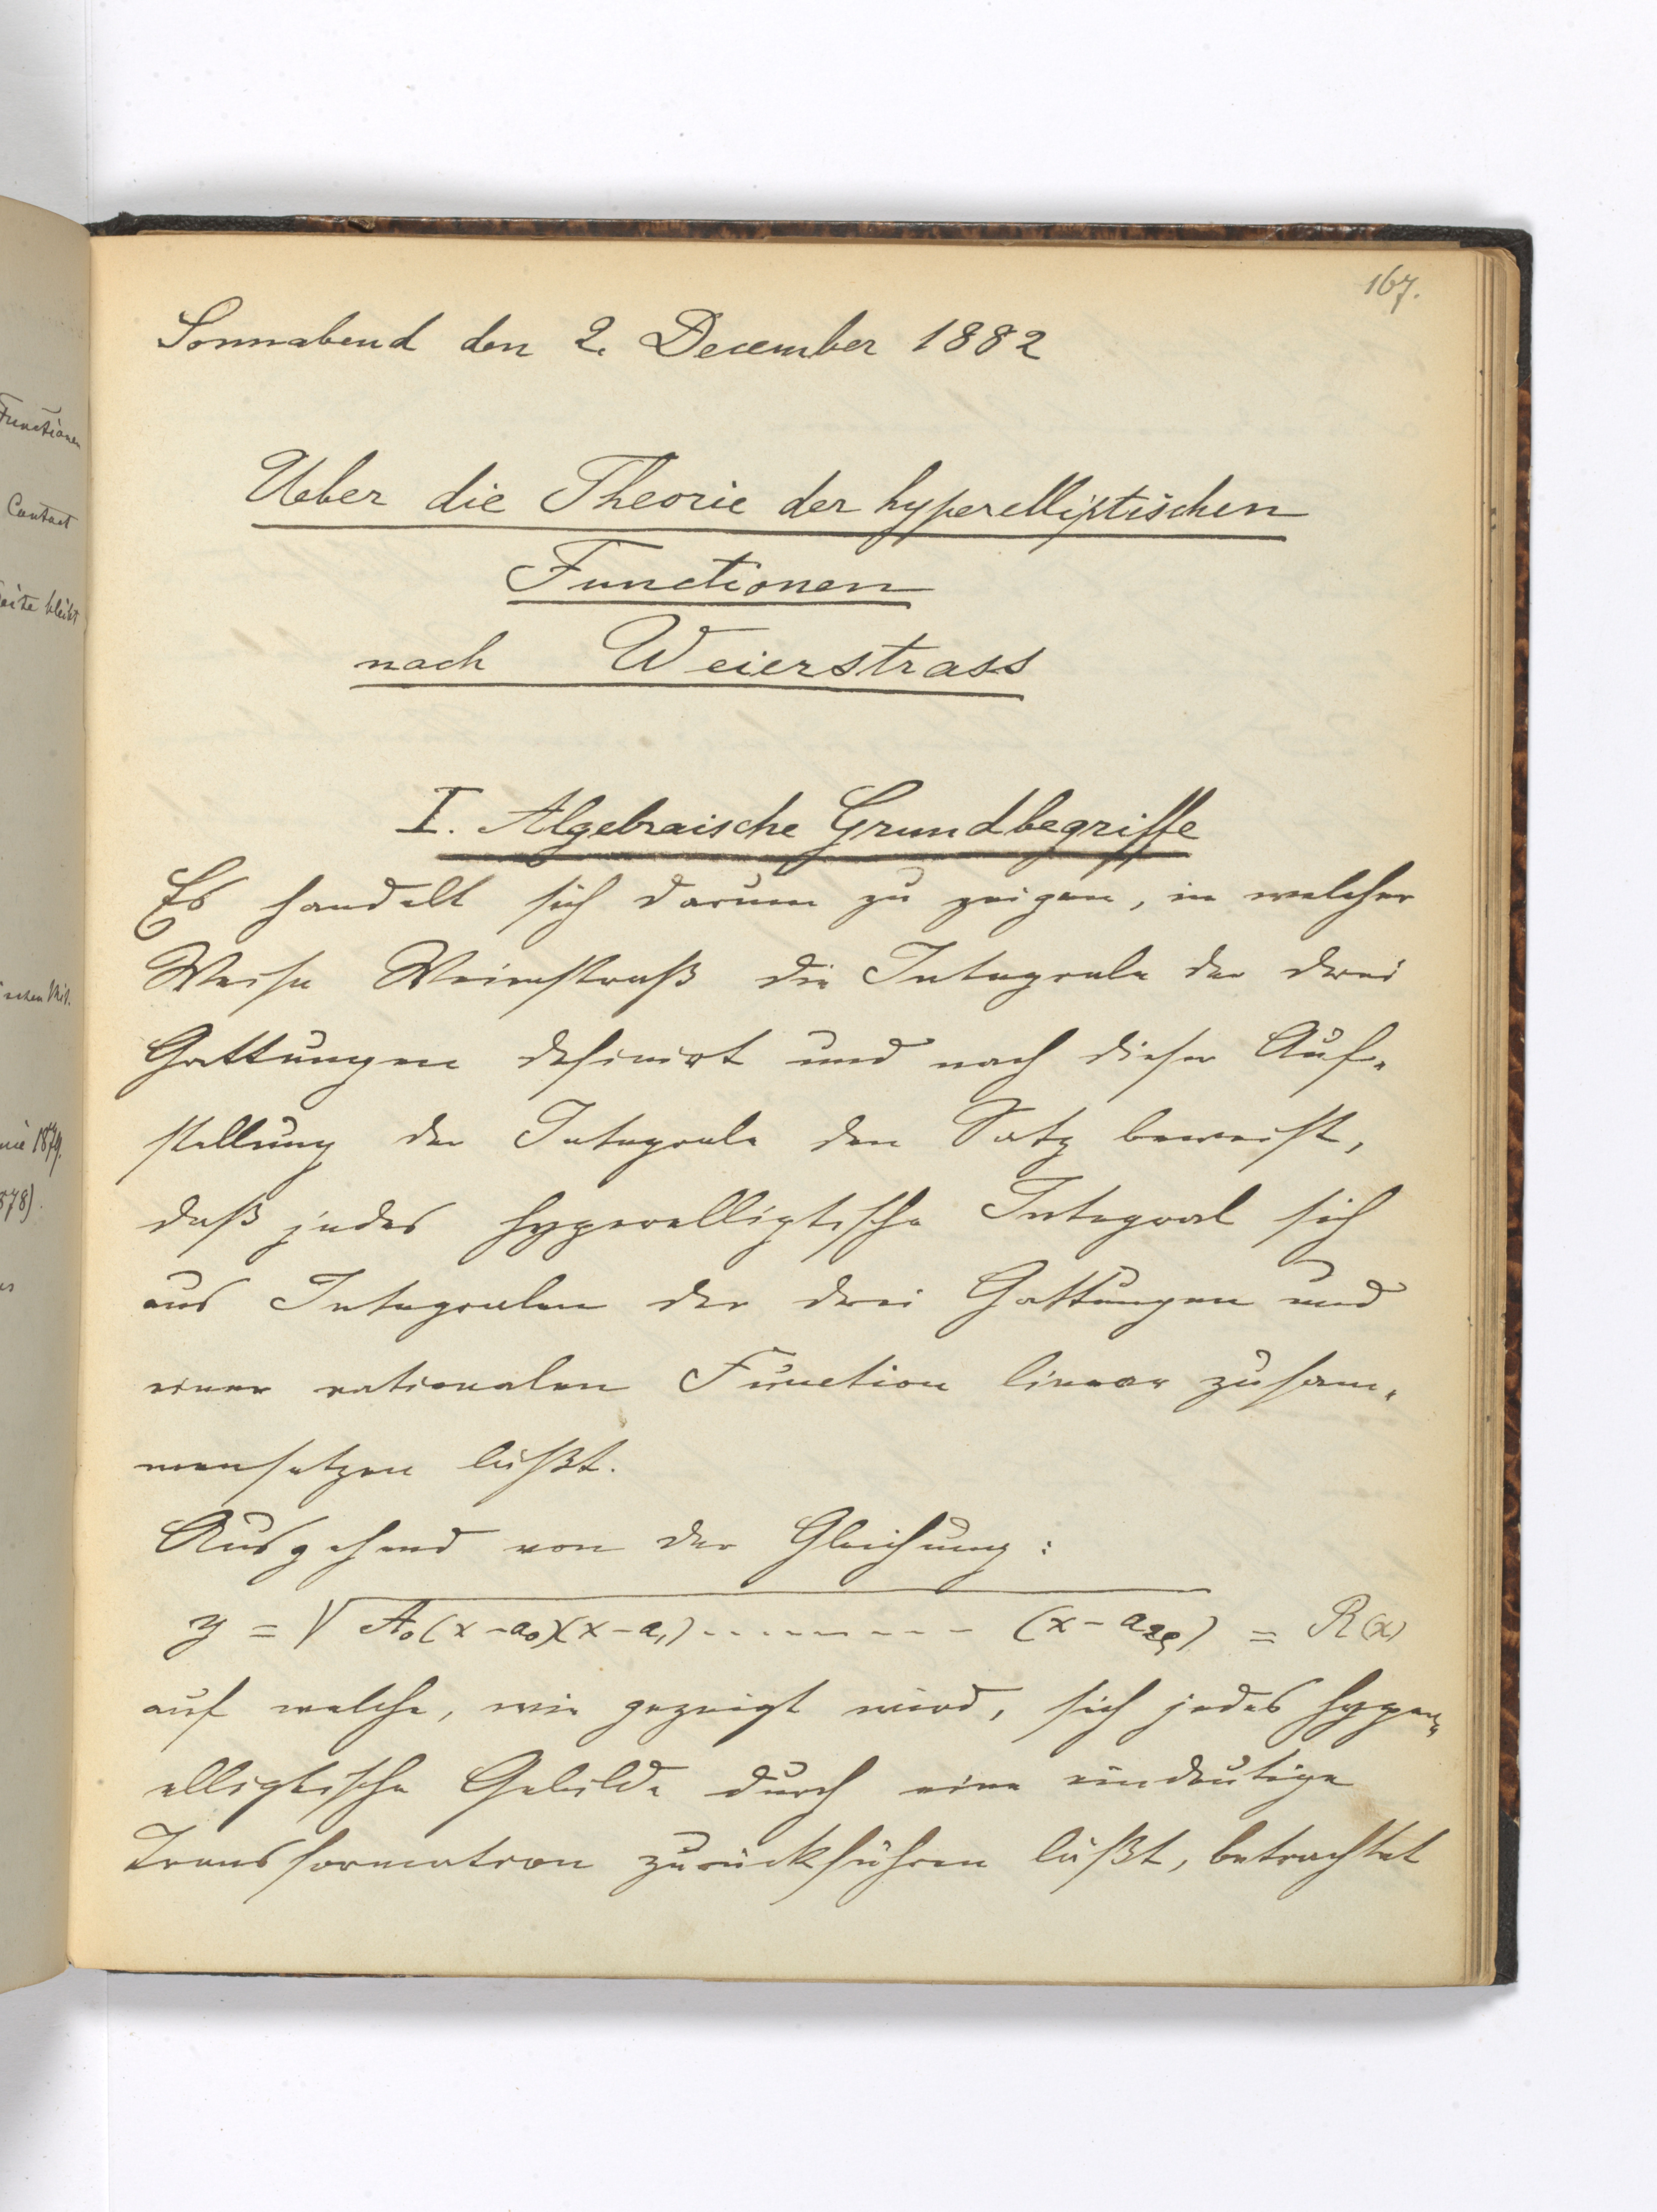 167.
Sonnabend den 2. December 1882
Ueber die Theorie der hyperelliptischen
Functionen
nach Weierstrass
I. Algebraische Grundbegriffe
Es handelt sich darum zu zeigen, in welcher
Weise Weierstraß die Integrale der drei
Gattungen definirt und nach dieser Auf-
stellung der Integrale den Satz beweist,
daß jedes hyperelliptische Integral sich
aus Integralen der drei Gattungen und
einer rationalen Function linear zusam-
mensetzen läßt.
Ausgehend von der Gleichung:
y = √A₀(x-a₀)(x-a₁)--------- (x-a₂ᵨ) = R(x)
auf welche, wie gezeigt wird, sich jedes hyper-
elliptische Gebilde durch eine eindeutige
Transformation zurückführen läßt, betrachtet
Functionen
Contact
bleibt
1879.
878).